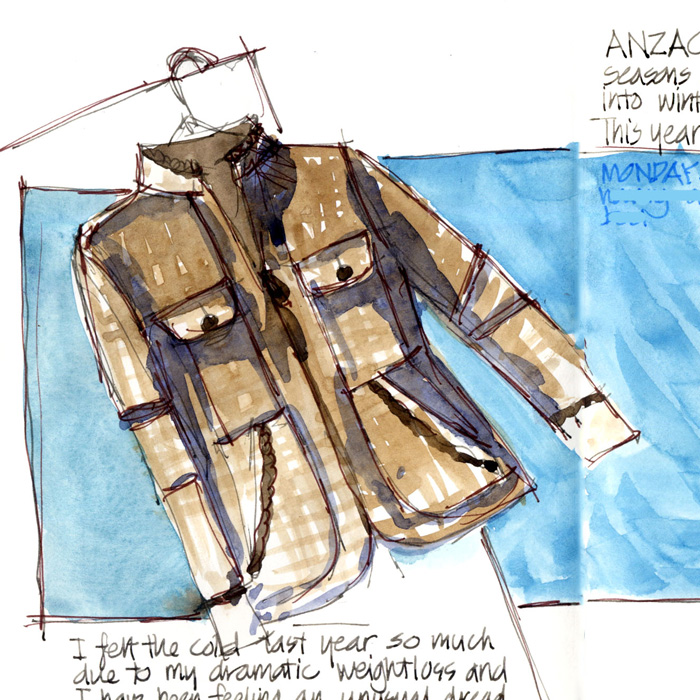 ANZAC
seasons
into wint
This year
MONDAY
I felt the cold last year so much
due to my dramatic weightloss and
I have been feeling an unusual dread